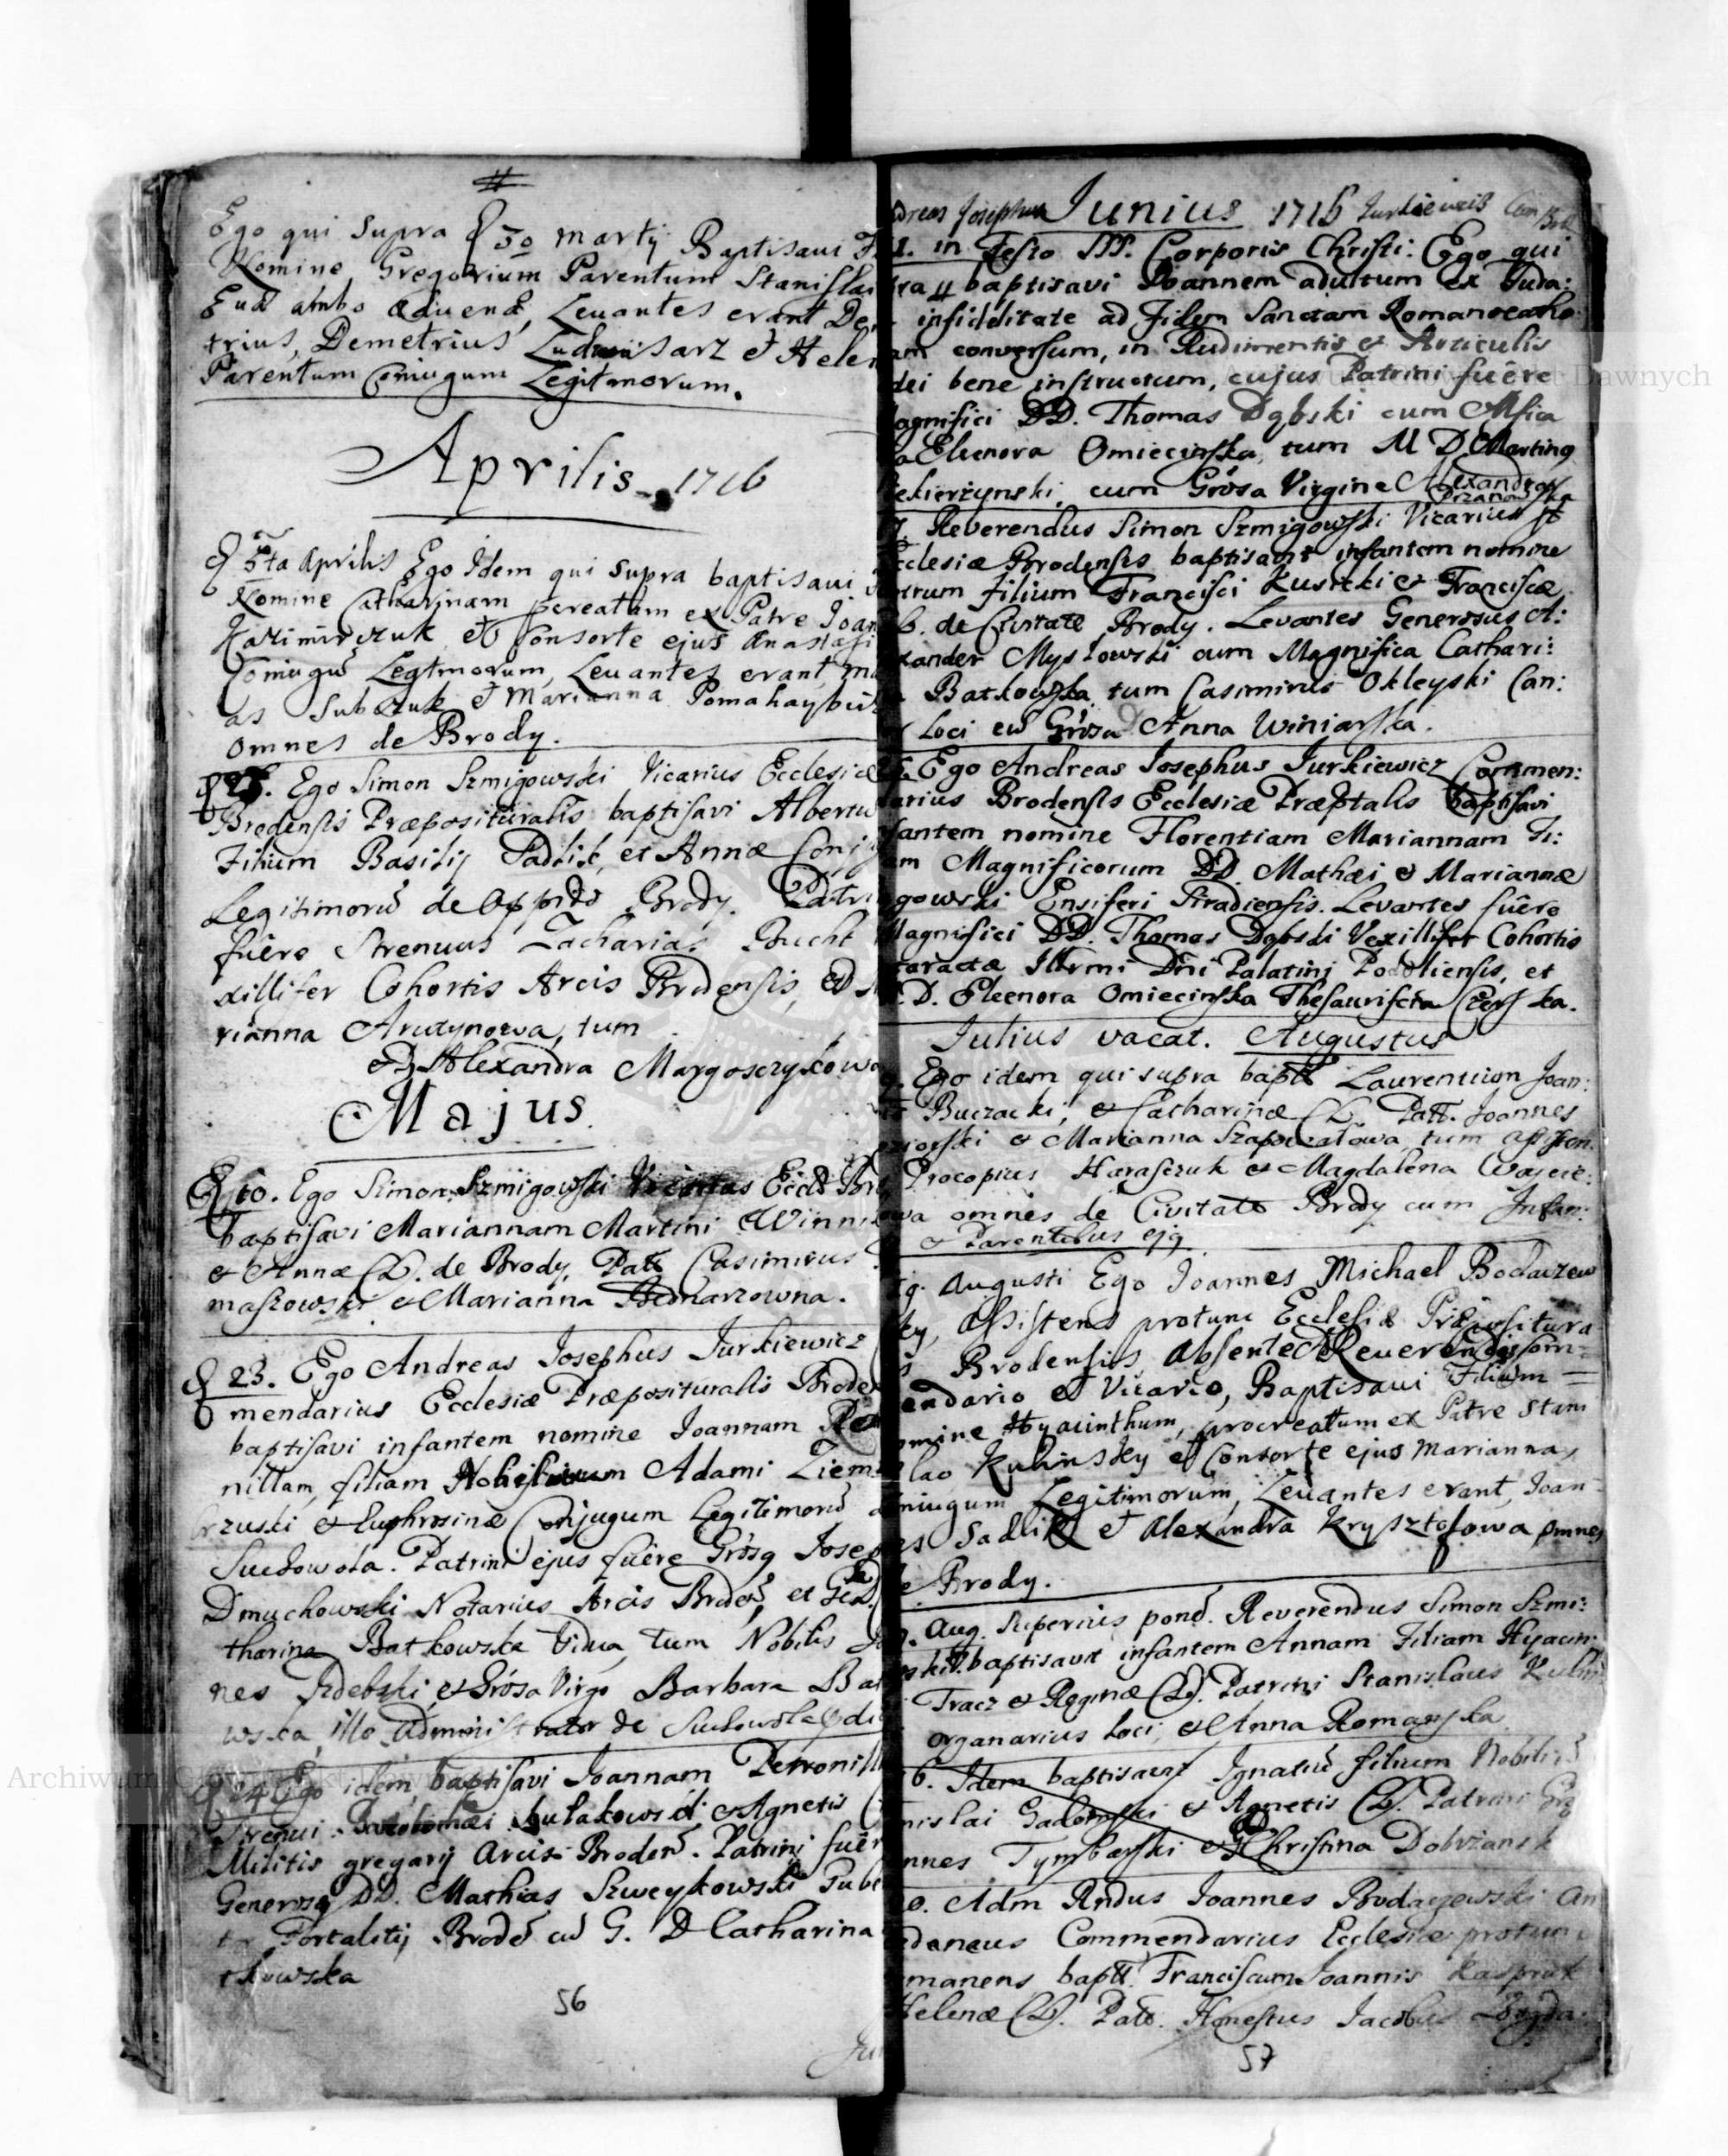 Ego qui supra 30 Martij Baptisavi
Nomine Gregorium Parentum Stanislai
Eva ambo advenae, Levantes erant De
trius, Demetrius sarz et Helen
Parentum Coniugum Legitimorum.
Aprilis 1716
5ta Aprilis Ego Idem qui supra baptisavi
Nomine Catharinam pcreatam ex Patre Joan
Kazimirczuk et Consorte ejus Anastasi
Coniugũ Legtmorum, Levantes erant, Ma
as Subczuk et Marianna Pomahaybi
omnes de Brody.
Ego Simon Szmigowski Vicarius Ecclesiæ
Brodensis Præposituralis baptisavi Albertu
Filium Basilij Padlik, et Annæ Conju
Legitimorũ de Oppido Brody. Patri
fuêre Strenuus Zacharias Bucht
xillifer Cohortis Arcis Brodensis, et
rianna Arutynowa, tum
Alexandra Margosczykowa
Majus.
10. Ego Simon Szmigowski Vicarius Eccł Bro
baptisavi Mariannam Martini Winni
& Annæ CL. de Brody, Patt Casimirus
maszowski & Marianna Bednarzowna.
23. Ego Andreas Josephus Jurkiewicz
mendarius Ecclesiæ Præposituralis Broden
baptisavi infantem nomine Joannam Pet
nillam, filiam Adami Ziem
brzuski & Euphrosinæ Conjugum Legitimorũ
Suchowola. Patrini ejus fuêre Grosq Josep
Dmuchowski Notarius Arcis Broden, et
tharina Batkowska Vidua, tum Nobilis Jo
nes Izdebski & Grosa Virgo Barbara Bat
wska, illo Administrator de Suchowola
24 Ego idem baptisavi Joannam Petronill
Strenui Bartholomæi Bułakowski & Agnetis
Militis gregarij Arcis Broden. Patrini fuêr
Generosq DD. Mathias Szweykowski Gube
tor Fortalitij Broden cũ G. D Catharina
tkowska
56
dreas Josephus Junius 1716 Jurkiewicz Com Brod
1. in Festo SSS. Corporis Christi: Ego qui
ra baptisavi Joannem adultum ex Juda:
infidelitate ad Fidem Sanctam Romanocatho:
am conversum, in Rudimentis & Articulis
dei bene instructum, cujus Patrini fuêre
agnifici DD. Thomas Dąbski cum Mfica
a Eleonora Omiecinska, tum M D. Martinq
iekierzynski, cum Grosa Virgine Alexandra
Przanowska
7. Reverendus Simon Szmigowski Vicarius
cclesiæ Brodensis baptisavit infantem nomine
trum filium Francisci Kusicki & Franciscæ
b. de Civitate Brody. Levantes Generosus Al:
xander Mysłowski cum Magnifica Cathari:
Batkowska, tum Casimirus Okleyski Can:
Loci cũ Grosa Anna Winiarska.
Ego Andreas Josephus Jurkiewicz Commen:
arius Brodensis Ecclesiæ Præptalis baptisavi
fantem nomine Florentiam Mariannam Fi:
am Magnificorum DD. Mathæi & Mariannæ
gowski Ensiferi Siradiensis. Levantes fuêre
Magnifici DD. Thomas Dąbski Vexillifer Cohortis
taractæ Illrmi Dni Palatini Podoliensis, et
. D. Eleonora Omiecinska Thesaurifcta Czerska.
Julius vacat. Augustus
Ego idem qui supra baptt Laurentium Joan:
Buczacki, & Catharinæ CL. Patt. Joannes
ziorski & Marianna Szapowałowa, tum Assisten.
Procopius Harasczuk & Magdalena Woycie:
owa omnes de Civitate Brody cum Infan:
& Parentibus ejq
Augusti Ego Joannes Michael Bodaczew
ky, Assistens protunc Ecclesiæ Præpositura
s Brodensis Absente Reverendo Com=
endario et Vicario, Baptisavi Filium=
omine Hyacinthum, procreatum ex Patre Stani
lao Kulinsky et Consorte ejus Marianna,
niugum Legitimorum, Levantes erant, Joan=
es Sadlik et Alexandra Krysztofowa omnes
e Brody.
Aug. superius pond. Reverendus Simon Szmi:
wski baptisavit infantem Annam Filiam Hyacin:
Tracz & Reginæ CL. Patrini Stanislaus Kulin
organarius Loci, & Anna Romanska
6. Idem baptisavit Ignatiũ filium Nobiliũ
nislai Gadomski & Agnetis CL. Patrini Gro
nnes Tymbarski & Christina Dobrzansk
Adm Rndus Joannes Bodaczewski An
edaneus Commendarius Ecclesiæ protunc
manens baptt. Franciscum Joannis Kasprik
Helenæ CL. Patt. Honestus Jacobus Bogda:
57
Archiwum Główne Akt Dawnych